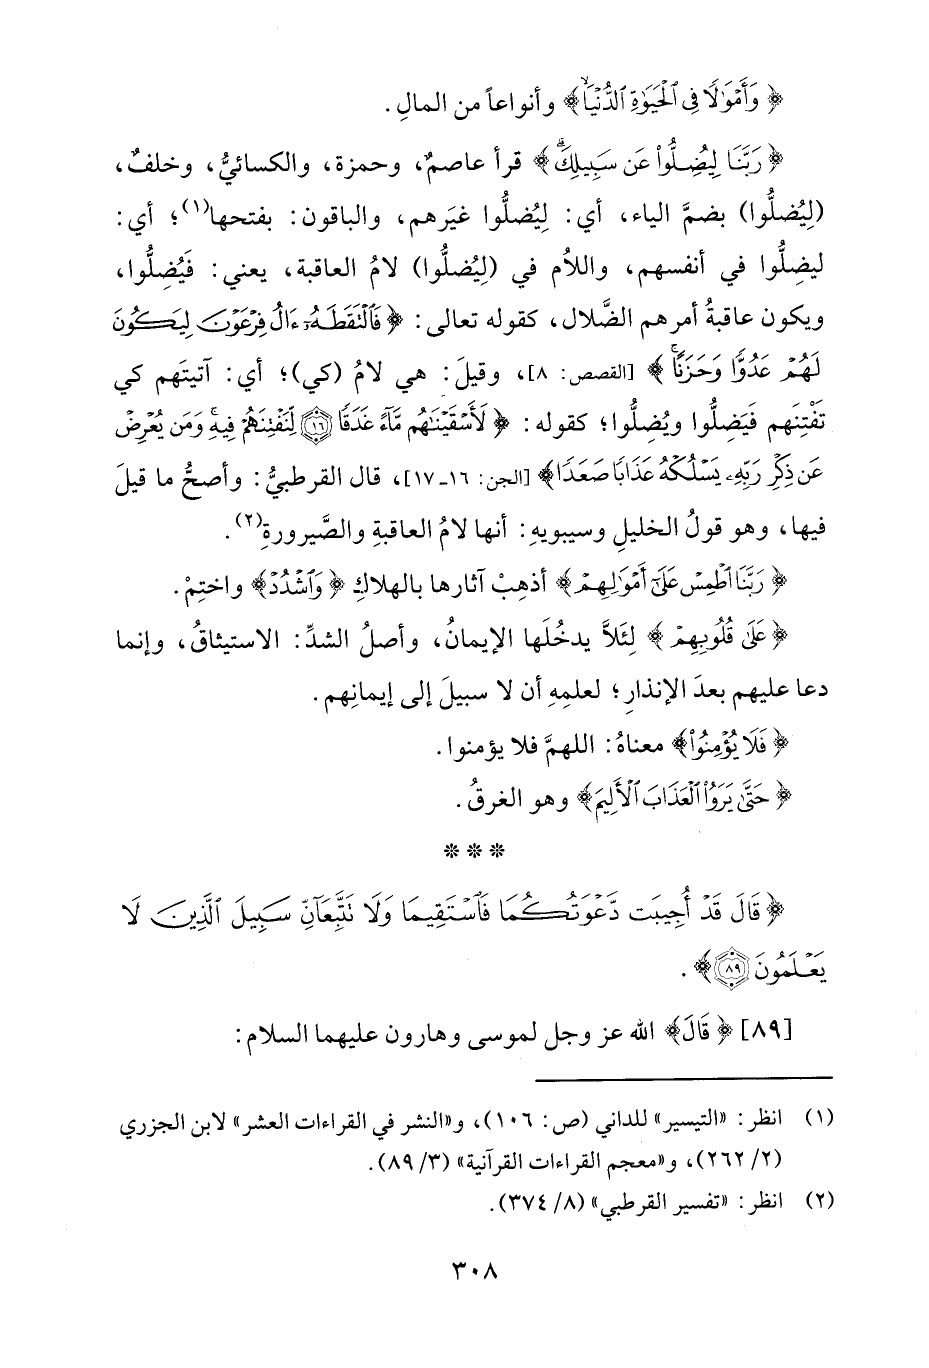 ﴿ وَأَمْوَٰلًا فِى ٱلْحَيَوٰةِ ٱلدُّنْيَا ﴾ وأنواعاً من المالِ .
﴿ رَبَّنَا لِيُضِلُّوا۟ عَن سَبِيلِكَ ﴾ قرأ عاصمٌ، وحمزة، والكسائيُّ، وخلفٌ،
(لِيُضلُّوا) بضمَّ الياء، أي: لِيُضلُّوا غيَرهم، والباقون: بفتحها(١)؛ أي:
ليضِلُّوا في أنفسهم، واللاُم في (لِيُضلُّوا) لامُ العاقبة، يعني: فَيُضِلُّوا،
ويكون عاقبةُ أمرهم الضَّلال، كقوله تعالى: ﴿ فَٱلْتَقَطَهُۥٓ ءَالُ فِرْعَوْنَ لِيَكُونَ
لَهُمْ عَدُوًّا وَحَزَنًا ﴾ [القصص: ٨]، وقيلَ: هي لامُ (كي)؛ أي: آتيتَهم كي
تفْتِنَهم فَيَضِلُّوا ويُضِلُّوا؛ كقوله: ﴿ لَأَسْقَيْنَٰهُم مَّآءً غَدَقًا ۝١٦ لِّنَفْتِنَهُمْ فِيهِ وَمَن يُعْرِضْ
عَن ذِكْرِ رَبِّهِۦ يَسْلُكْهُ عَذَابًا صَعَدًا ﴾ [الجن: ١٦-١٧]، قال القرطبيُّ: وأصحُّ ما قيلَ
فيها، وهو قولُ الخليلِ وسيبويهِ: أنها لامُ العاقبةِ والصَّيرورةِ(٢).
﴿ رَبَّنَا ٱطْمِسْ عَلَىٰٓ أَمْوَٰلِهِمْ ﴾ أذهِبْ آثارها بالهلاكِ ﴿ وَٱشْدُدْ ﴾ واختِمْ.
﴿ عَلَىٰ قُلُوبِهِمْ ﴾ لِئَلاَّ يدخُلَها الإيمانُ، وأصلُ الشدِّ: الاستيثاقُ، وإنما
دعا عليهم بعدَ الإنذارِ؛ لعلمِهِ أن لا سبيلَ إلى إيمانِهم.
﴿ فَلَا يُؤْمِنُوا۟ ﴾ معناهُ: اللهمَّ فلا يؤمنوا.
﴿ حَتَّىٰ يَرَوُا۟ ٱلْعَذَابَ ٱلْأَلِيمَ ﴾ وهو الغرقُ.
* * *
﴿ قَالَ قَدْ أُجِيبَت دَّعْوَتُكُمَا فَٱسْتَقِيمَا وَلَا تَتَّبِعَآنِّ سَبِيلَ ٱلَّذِينَ لَا
يَعْلَمُونَ ۝٨٩ ﴾ .
[٨٩] ﴿ قَالَ ﴾ الله عز وجل لموسى وهارون عليهما السلام:
(١) انظر: «التيسير» للداني (ص: ١٠٦)، و«النشر في القراءات العشر» لابن الجزري
(٢/ ٢٦٢)، و«معجم القراءات القرآنية» (٣/ ٨٩).
(٢) انظر: «تفسير القرطبي» (٨/ ٣٧٤).
٣٠٨